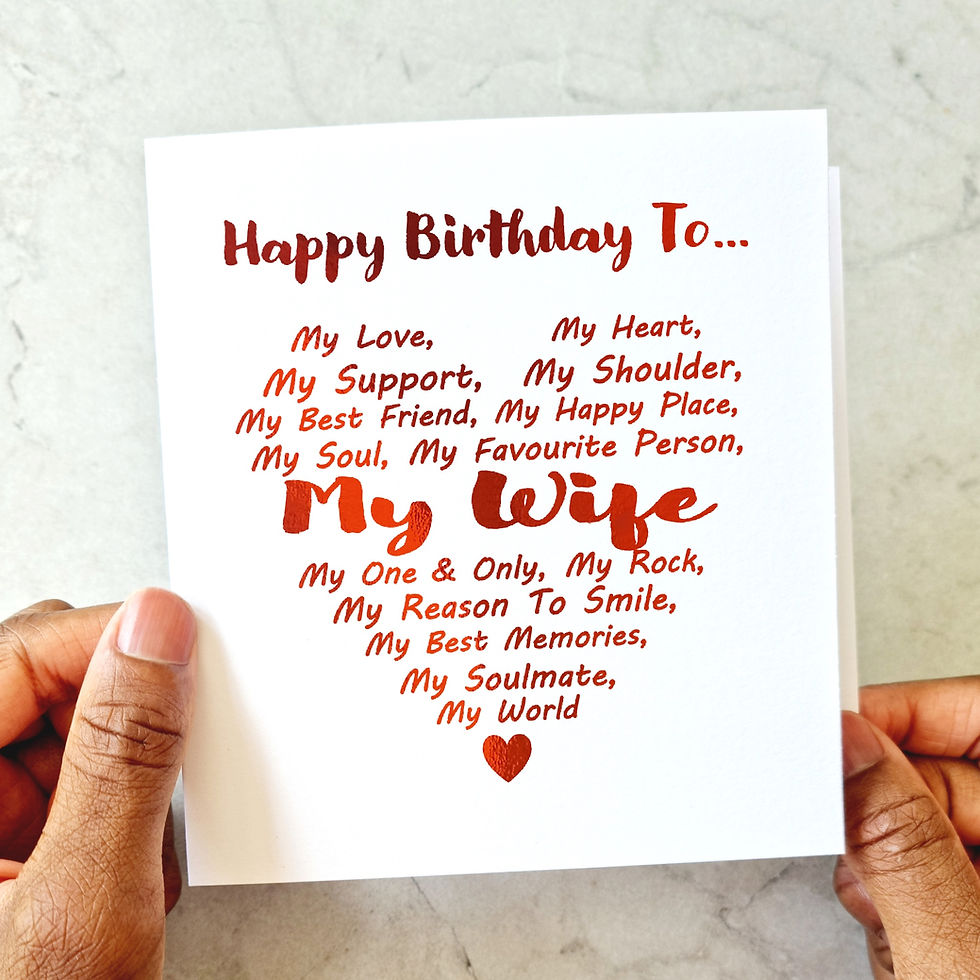 Happy Birthday To...
My Love, My Heart,
My Support, My Shoulder,
My Best Friend, My Happy Place,
My Soul, My Favourite Person,
My Wife
My One & Only, My Rock,
My Reason To Smile,
My Best Memories,
My Soulmate,
My World